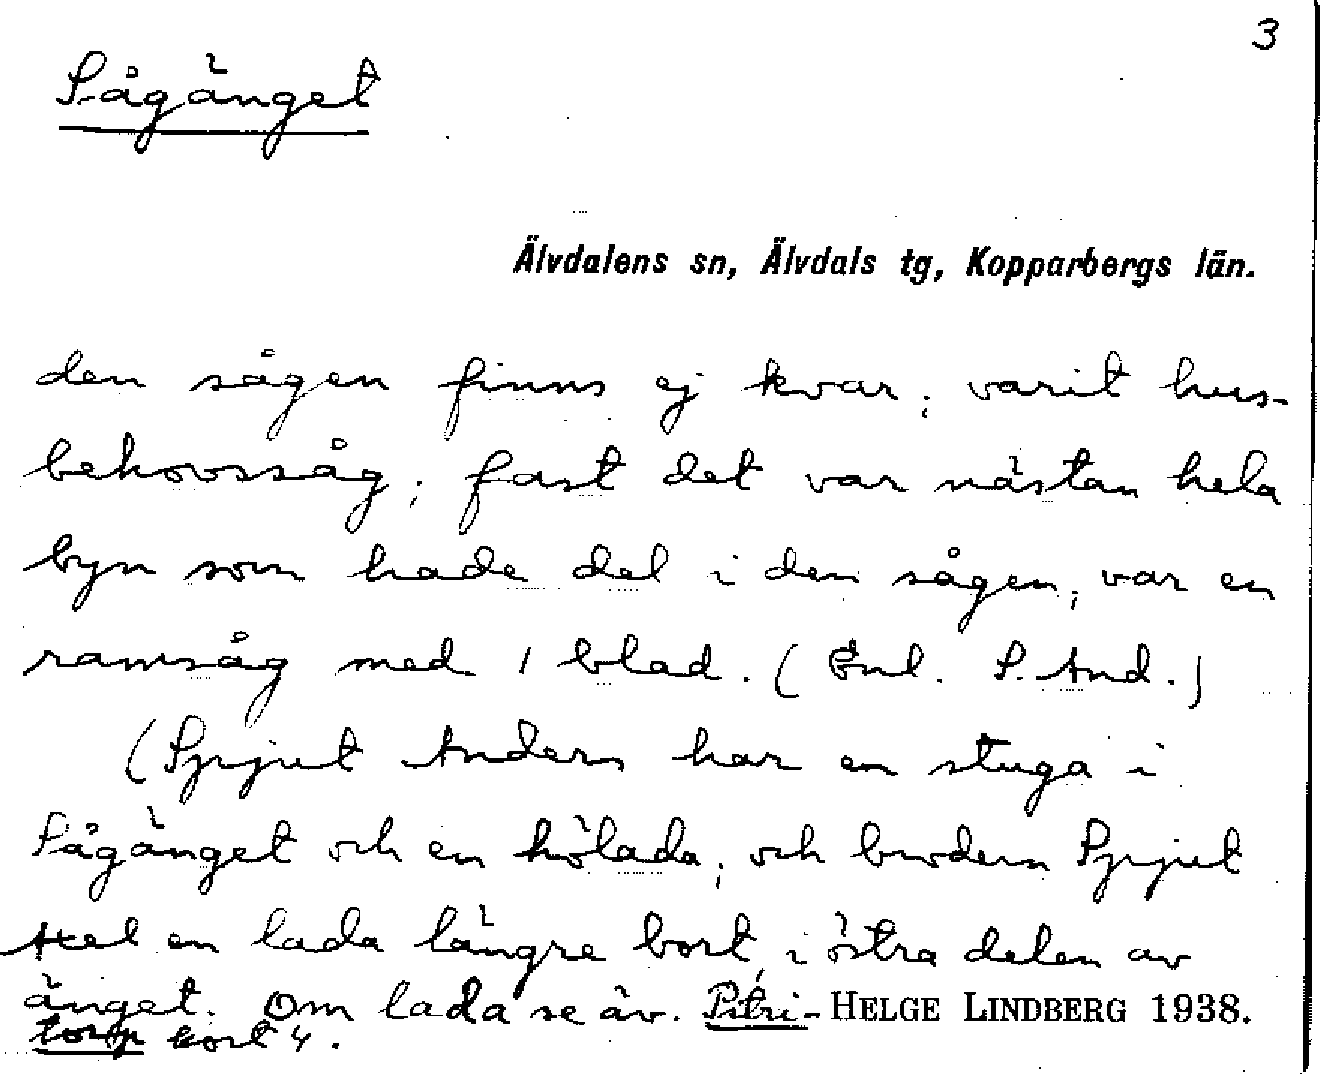 3
Sågänget
Älvdalens sn, Älvdals tg, Kopparbergs län.
den sågen finns ej kvar; varit hus-
behovssåg; fast det var nästan hela
byn som hade del i den sågen; var en
ramsåg med 1 blad. (Enl. S. And.)
(Spjut Anders har en stuga i
Sågänget och en hölada; och brodern Spjut
Axel en lada längre bort, i östra delen av
änget. Om lada se äv. Pitri- HELGE LINDBERG 1938.
torp kort 4.